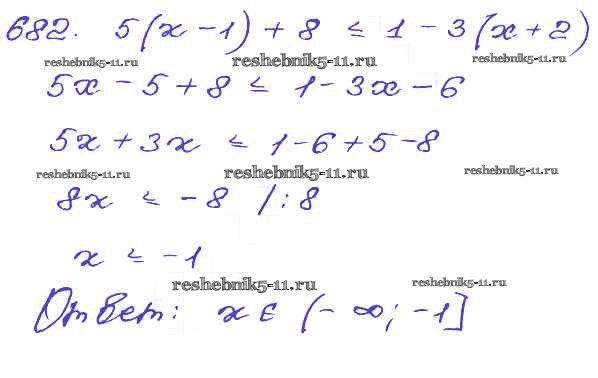 682. 5(x - 1) + 8 ≤ 1 - 3(x + 2)
reshebnik5-11.ru reshebnik5-11.ru reshebnik5-11.ru
5x - 5 + 8 ≤ 1 - 3x - 6
5x + 3x ≤ 1 - 6 + 5 - 8
reshebnik5-11.ru reshebnik5-11.ru reshebnik5-11.ru
8x ≤ -8 /:8
x ≤ -1
reshebnik5-11.ru reshebnik5-11.ru
Ответ: x ∈ (-∞; -1]